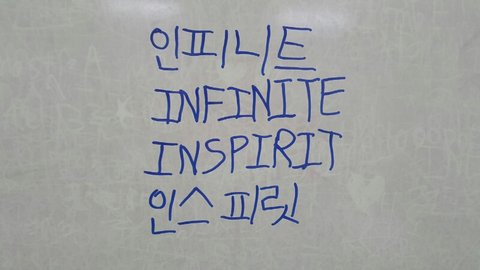 인피니트
INFINITE
INSPIRIT
인스피릿